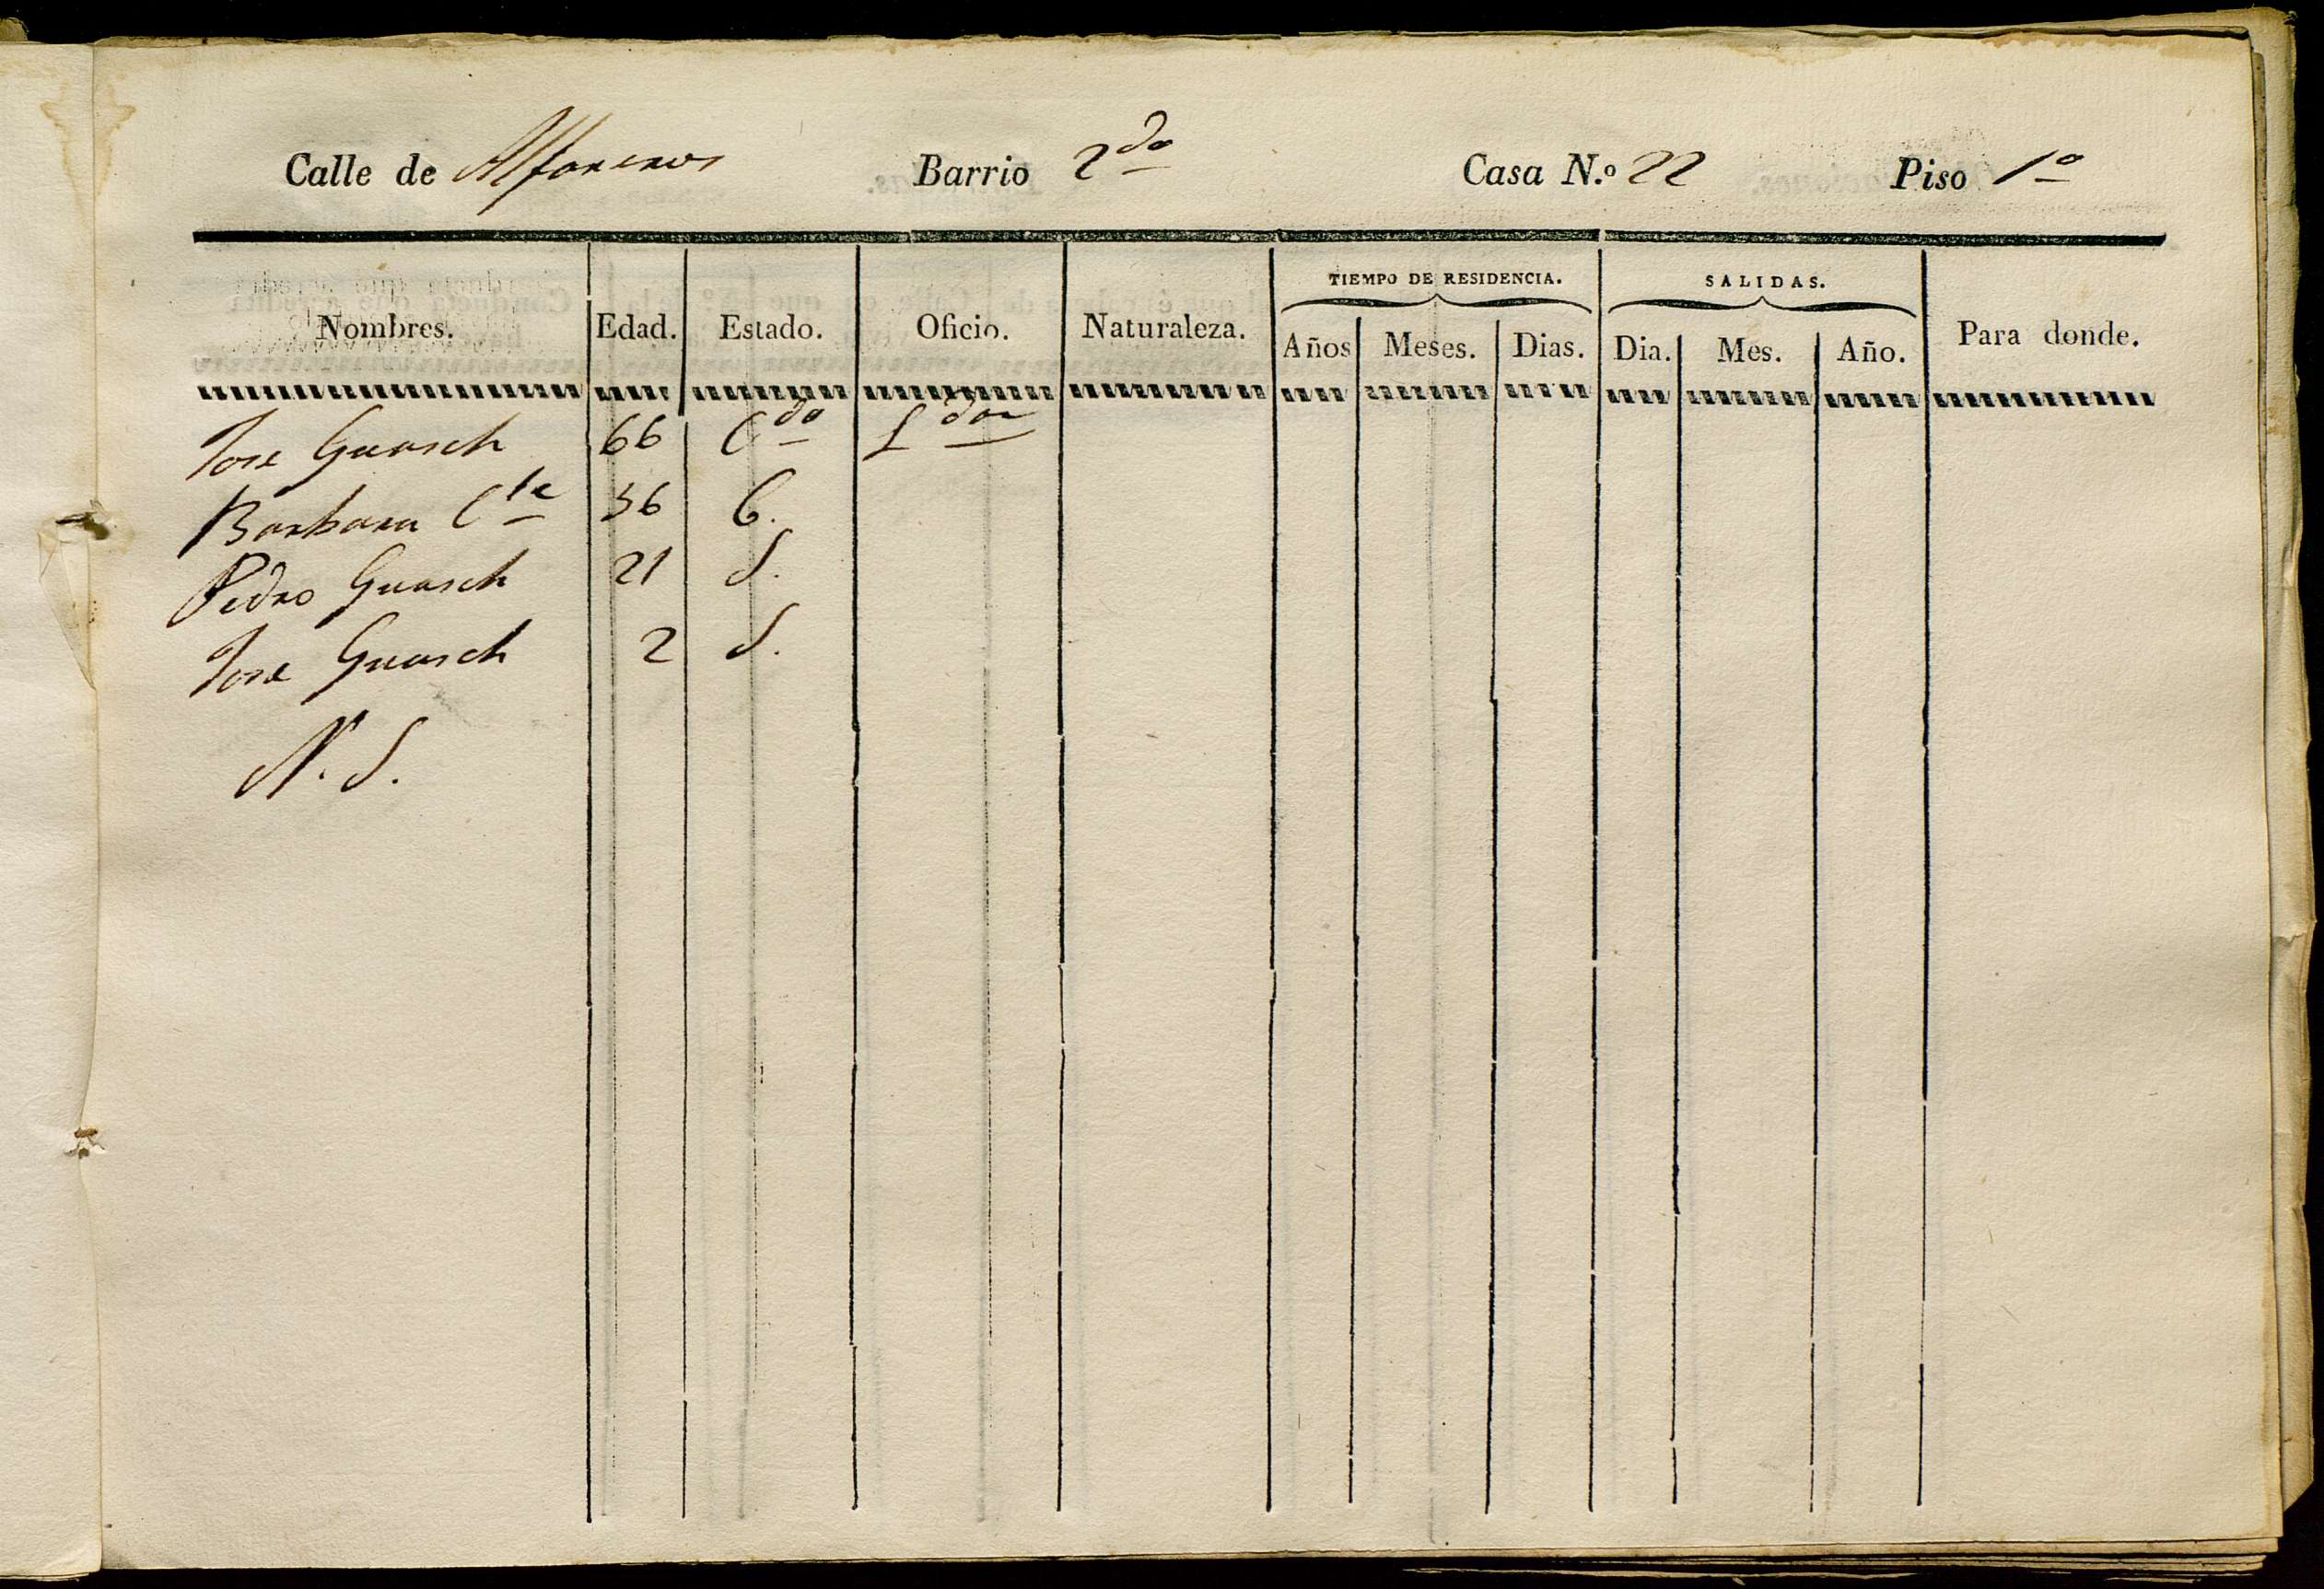 Calle de Alfareros Barrio 2do Casa N.o 22 Piso 1o
Nombres. Edad. Estado. Oficio. Naturaleza. TIEMPO DE RESIDENCIA. SALIDAS. Para donde.
Años Meses. Dias. Dia. Mes. Año.
Jose Guasch 66 Cdo Ldor
Barbara Cte 56 C.
Pedro Guasch 21 S.
Jose Guasch 2 S.
N. S.